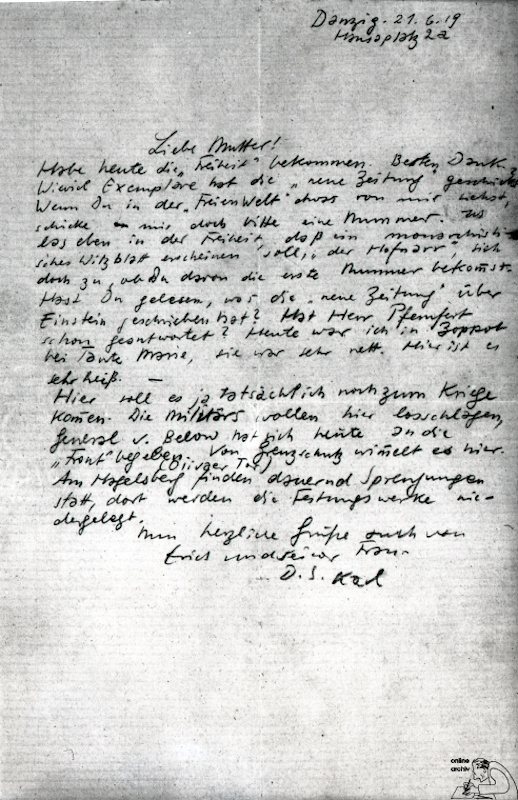 Danzig. 21.6.19
Hansaplatz 2a
Liebe Mutter!
Habe heute die „Freiheit" bekommen. Besten Dank.
Wieviel Exemplare hat die „neue Zeitung" geschickt?
Wenn Du in der „Freien Welt" etwas von mir siehst,
schicke mir doch bitte eine Nummer. Ich
las eben in der Freiheit, daß ein monarchisti-
sches Witzblatt erscheinen soll, „der Hofnarr", sieh
doch zu, ob Du davon die erste Nummer bekommst.
Hast Du gelesen, was die „neue Zeitung" über
Einstein geschrieben hat? Hat Herr Pfemfert
schon geantwortet? Heute war ich in Zoppot
bei Tante Marie, sie war sehr nett. Hier ist es
sehr heiß. —
Hier soll es ja tatsächlich noch zum Kriege
komen. Die Militärs wollen hier losschlagen,
General v. Below hat sich heute an die
„Front" begeben. Von Grenzschutz wimelt es hier.
Am Hagelsberg (Olivaer Tor) finden dauernd Sprengungen
statt, dort werden die Festungswerke nie-
dergelegt.
Nun herzliche Grüße auch von
Erich und seiner Frau.
D. S. Karl
online
archiv